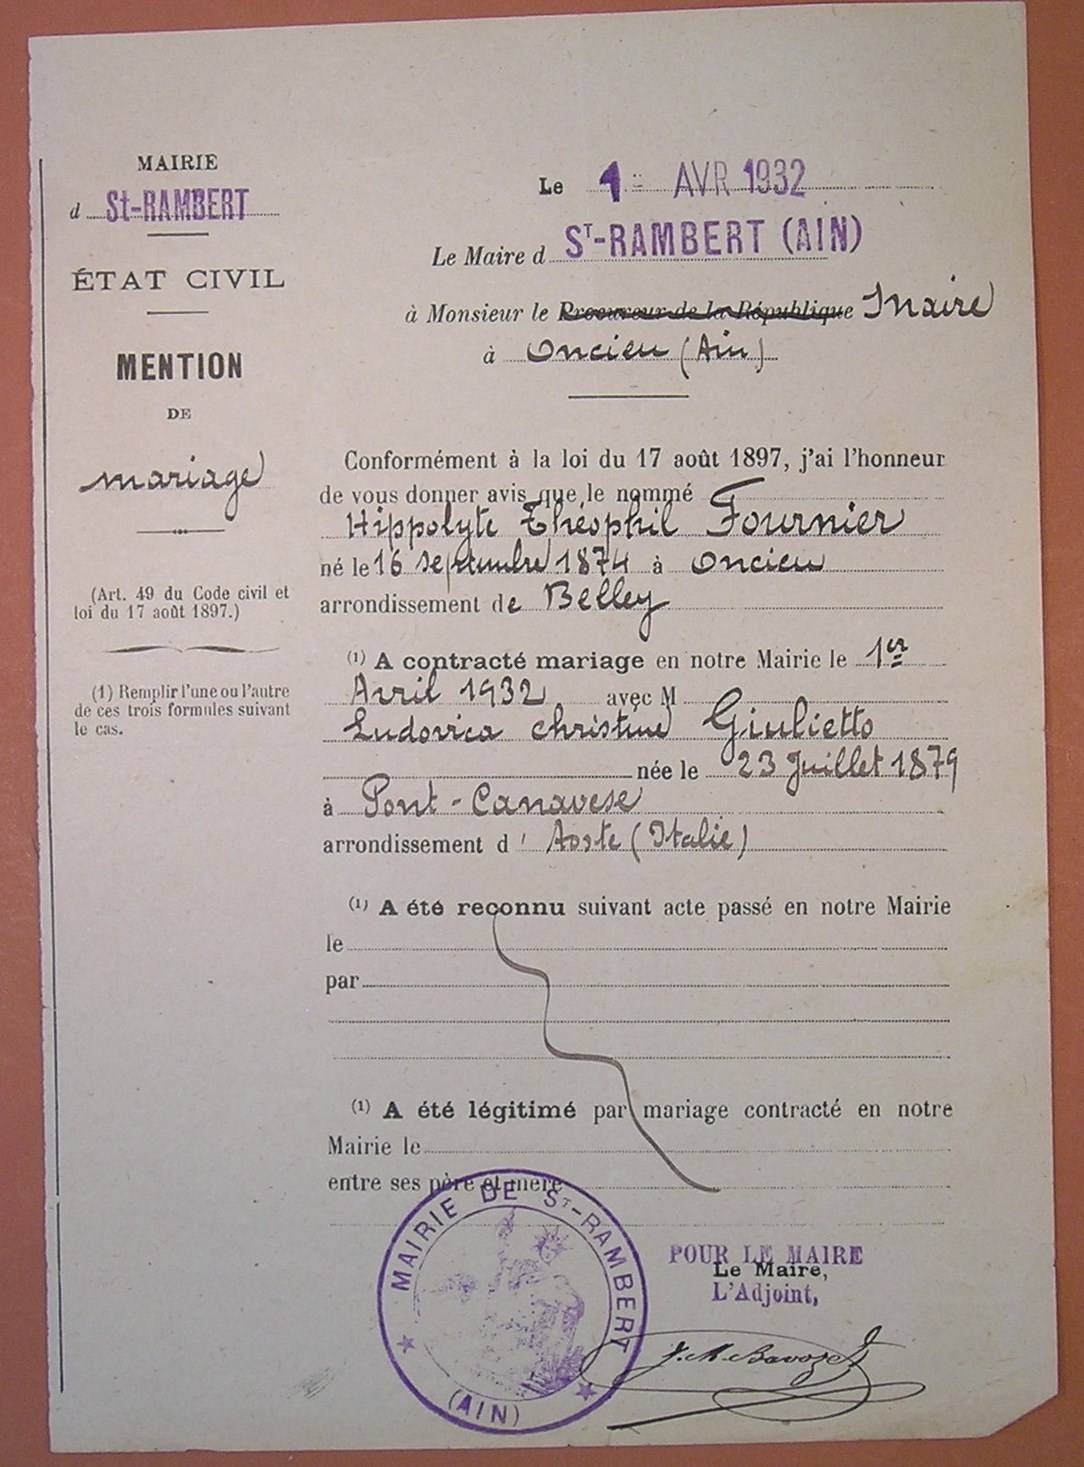 MAIRIE
d St-RAMBERT
ÉTAT CIVIL
MENTION
DE
mariage
(Art. 49 du Code civil et
loi du 17 août 1897.)
(1) Remplir l'une ou l'autre
de ces trois formules suivant
le cas.
Le 1 AVR 1932
Le Maire d ST-RAMBERT (AIN)
à Monsieur le Procureur de la République Maire
à Oncieu (Ain)
Conformément à la loi du 17 août 1897, j'ai l'honneur
de vous donner avis que le nommé
Hippolyte Théophil Fournier
né le 16 septembre 1874 à Oncieu
arrondissement de Belley
(1) A contracté mariage en notre Mairie le 1er
Avril 1932 avec M
Ludovica christine Giulietto
née le 23 Juillet 1879
à Pont-Canavese
arrondissement d' Aoste (Italie)
(1) A été reconnu suivant acte passé en notre Mairie
le
par
(1) A été légitimé par mariage contracté en notre
Mairie le
entre ses père et mère
MAIRIE DE ST-RAMBERT
(AIN)
POUR LE MAIRE
Le Maire,
L'Adjoint,